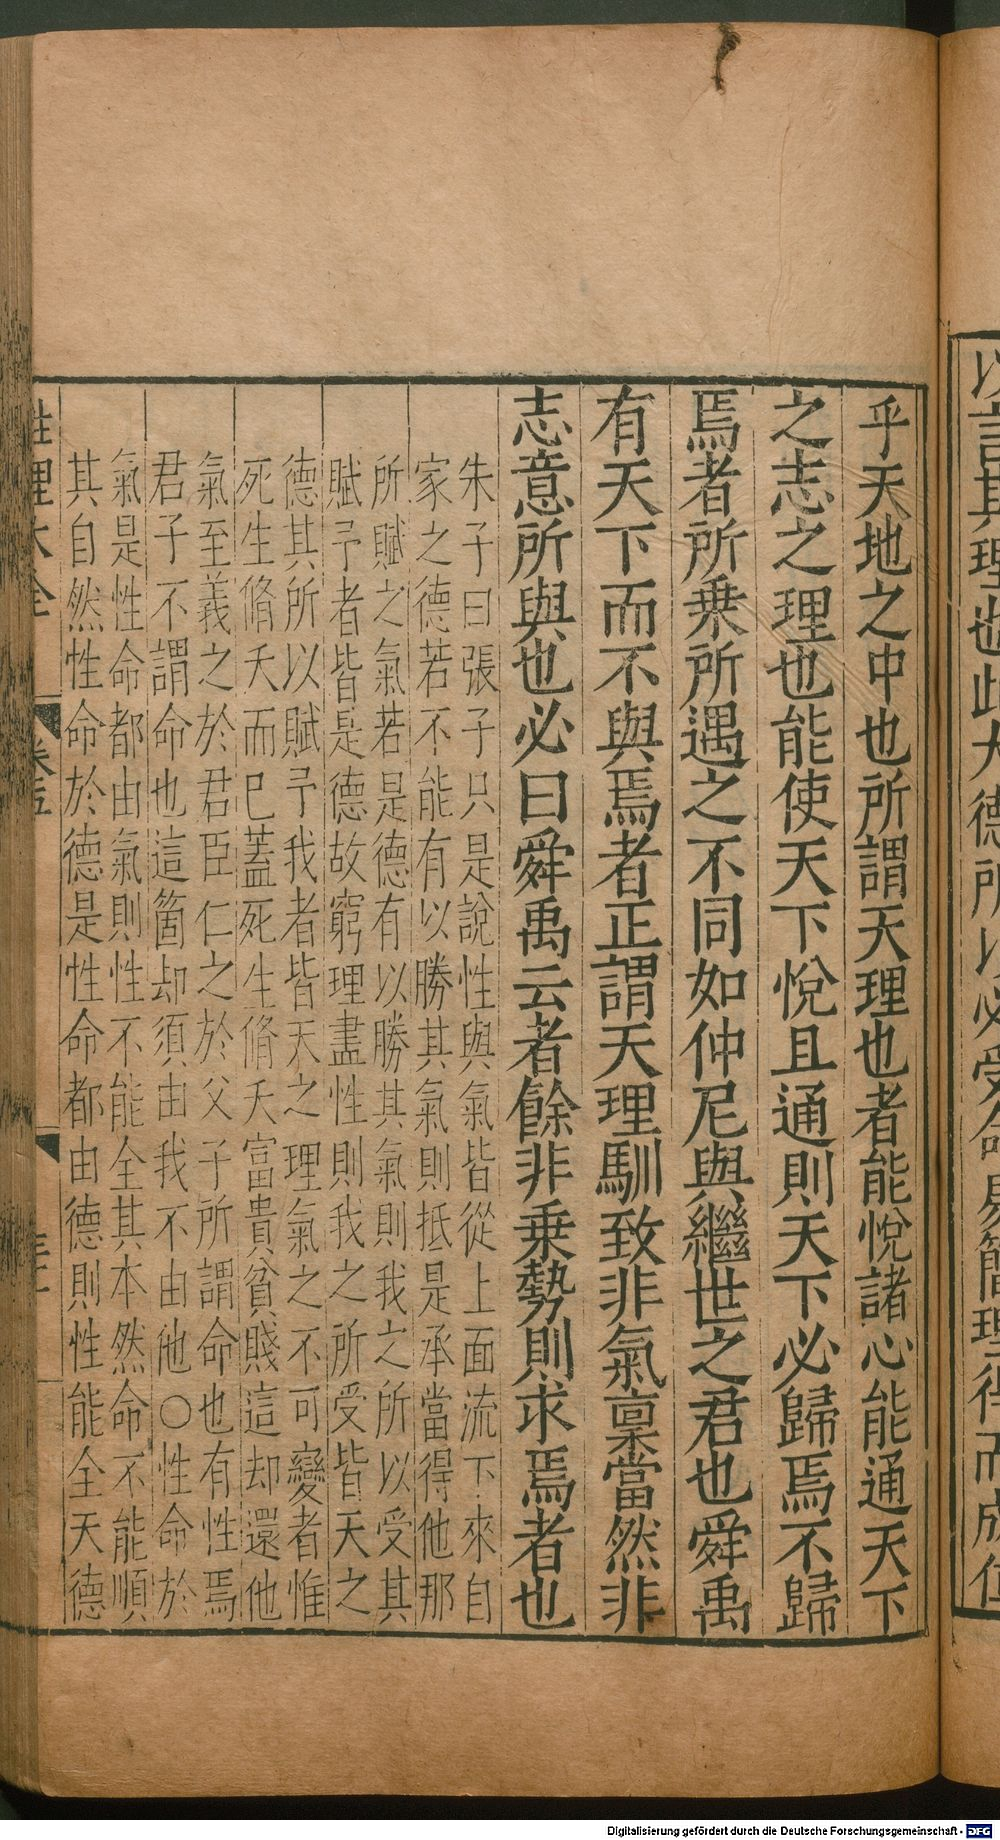 以言其理也此大德所以必受命易簡理得而成位
乎天地之中也所謂天理也者能悅諸心能通天下
之志之理也能使天下悅且通則天下必歸焉不歸
焉者所乗所遇之不同如仲尼與繼世之君也舜禹
有天下而不與焉者正謂天理馴致非氣稟當然非
志意所與也必曰舜禹云者餘非乗勢則求焉者也
朱子曰張子只是說性與氣皆從上面流下來自
家之德若不能有以勝其氣則抵是承當得他那
所賦之氣若是德有以勝其氣則我之所以受其
賦予者皆是德故窮理盡性則我之所受皆天之
德其所以賦予我者皆天之理氣之不可變者惟
死生脩夭而已蓋死生脩夭富貴貧賤這却還他
氣至義之於君臣仁之於父子所謂命也有性焉
君子不謂命也這箇却須由我不由他〇性命於
氣是性命都由氣則性不能全其本然命不能順
其自然性命於德是性命都由德則性能全天德
性理大全 卷五
Digitalisierung gefördert durch die Deutsche Forschungsgemeinschaft - DFG